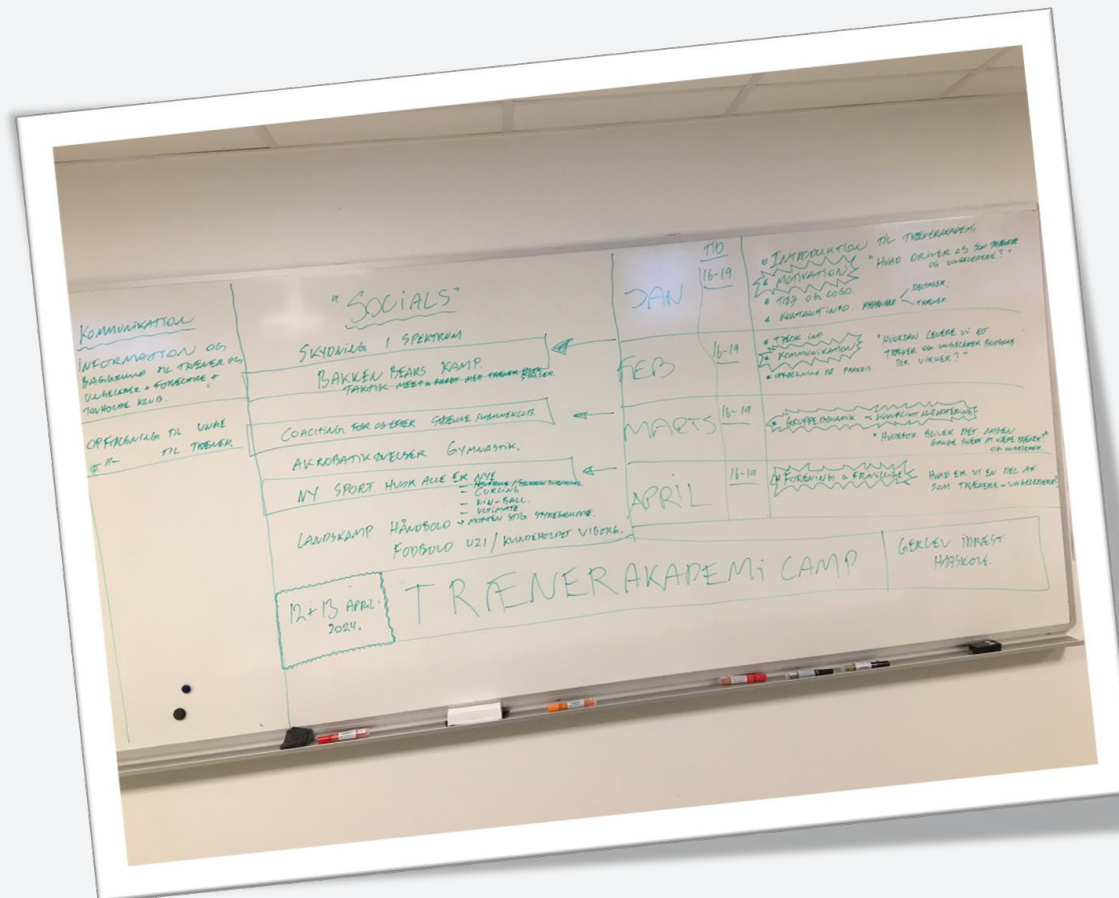 KOMMUNIKATION
INFORMATION OG
BAGGRUND TIL TRÆNER OG
UNGELEDER + FORÆLDRE +
TOVHOLDER KLUB.
OPFØLGNING TIL UNGE
-11- TIL TRÆNER.
"SOCIALS"
SKYDNING I SPEKTRUM
BAKKEN BEARS KAMP.
TAKTIK MEET & GREET MED TRÆNER SPILLER.
COACHING FØR OG EFTER SVØMMEKLUB
AKROBATIKØVELSER GYMNASTIK.
NY SPORT HVOR ALLE ER NYE
- CURLING
- KIN-BALL.
- ULTIMATE
LANDSKAMP HÅNDBOLD → MORTEN STIG STYREGRUPPE.
FODBOLD U21/KVINDEHOLDET VIBORG.
TID
JAN
16-19
• INTRODUKTION TIL TRÆNERAKADEMI
• MOTIVATION
"HVAD DRIVER OS SOM TRÆNERE
OG UNGELEDERE?"
• TØJ OG LOGO.
• KONTAKT INFO.
TRÆNER
FEB
16-19
• TJECK IND
• KOMMUNIKATION
"HVORDAN LEVERE VI ET
TRÆNER OG UNGELEDER BUDSKAB
DER VIRKER?"
• OPFØLGNING PÅ PRAKSIS.
MARTS
16-19
• GRUPPEDYNAMIK & KONFLIKT HÅNDTERING
"HVORFOR BLIVER DET NOGEN
GANGE SVÆRT AT VÆRE TRÆNER
OG UNGELEDER."
APRIL
16-19
• FORENING & FRIVILLIGE
HVAD ER VI EN DEL AF
SOM TRÆNERE & UNGELEDERE?
12+13 APRIL.
2024.
TRÆNERAKADEMI CAMP
GERLEV IDRÆTS
HØJSKOLE.